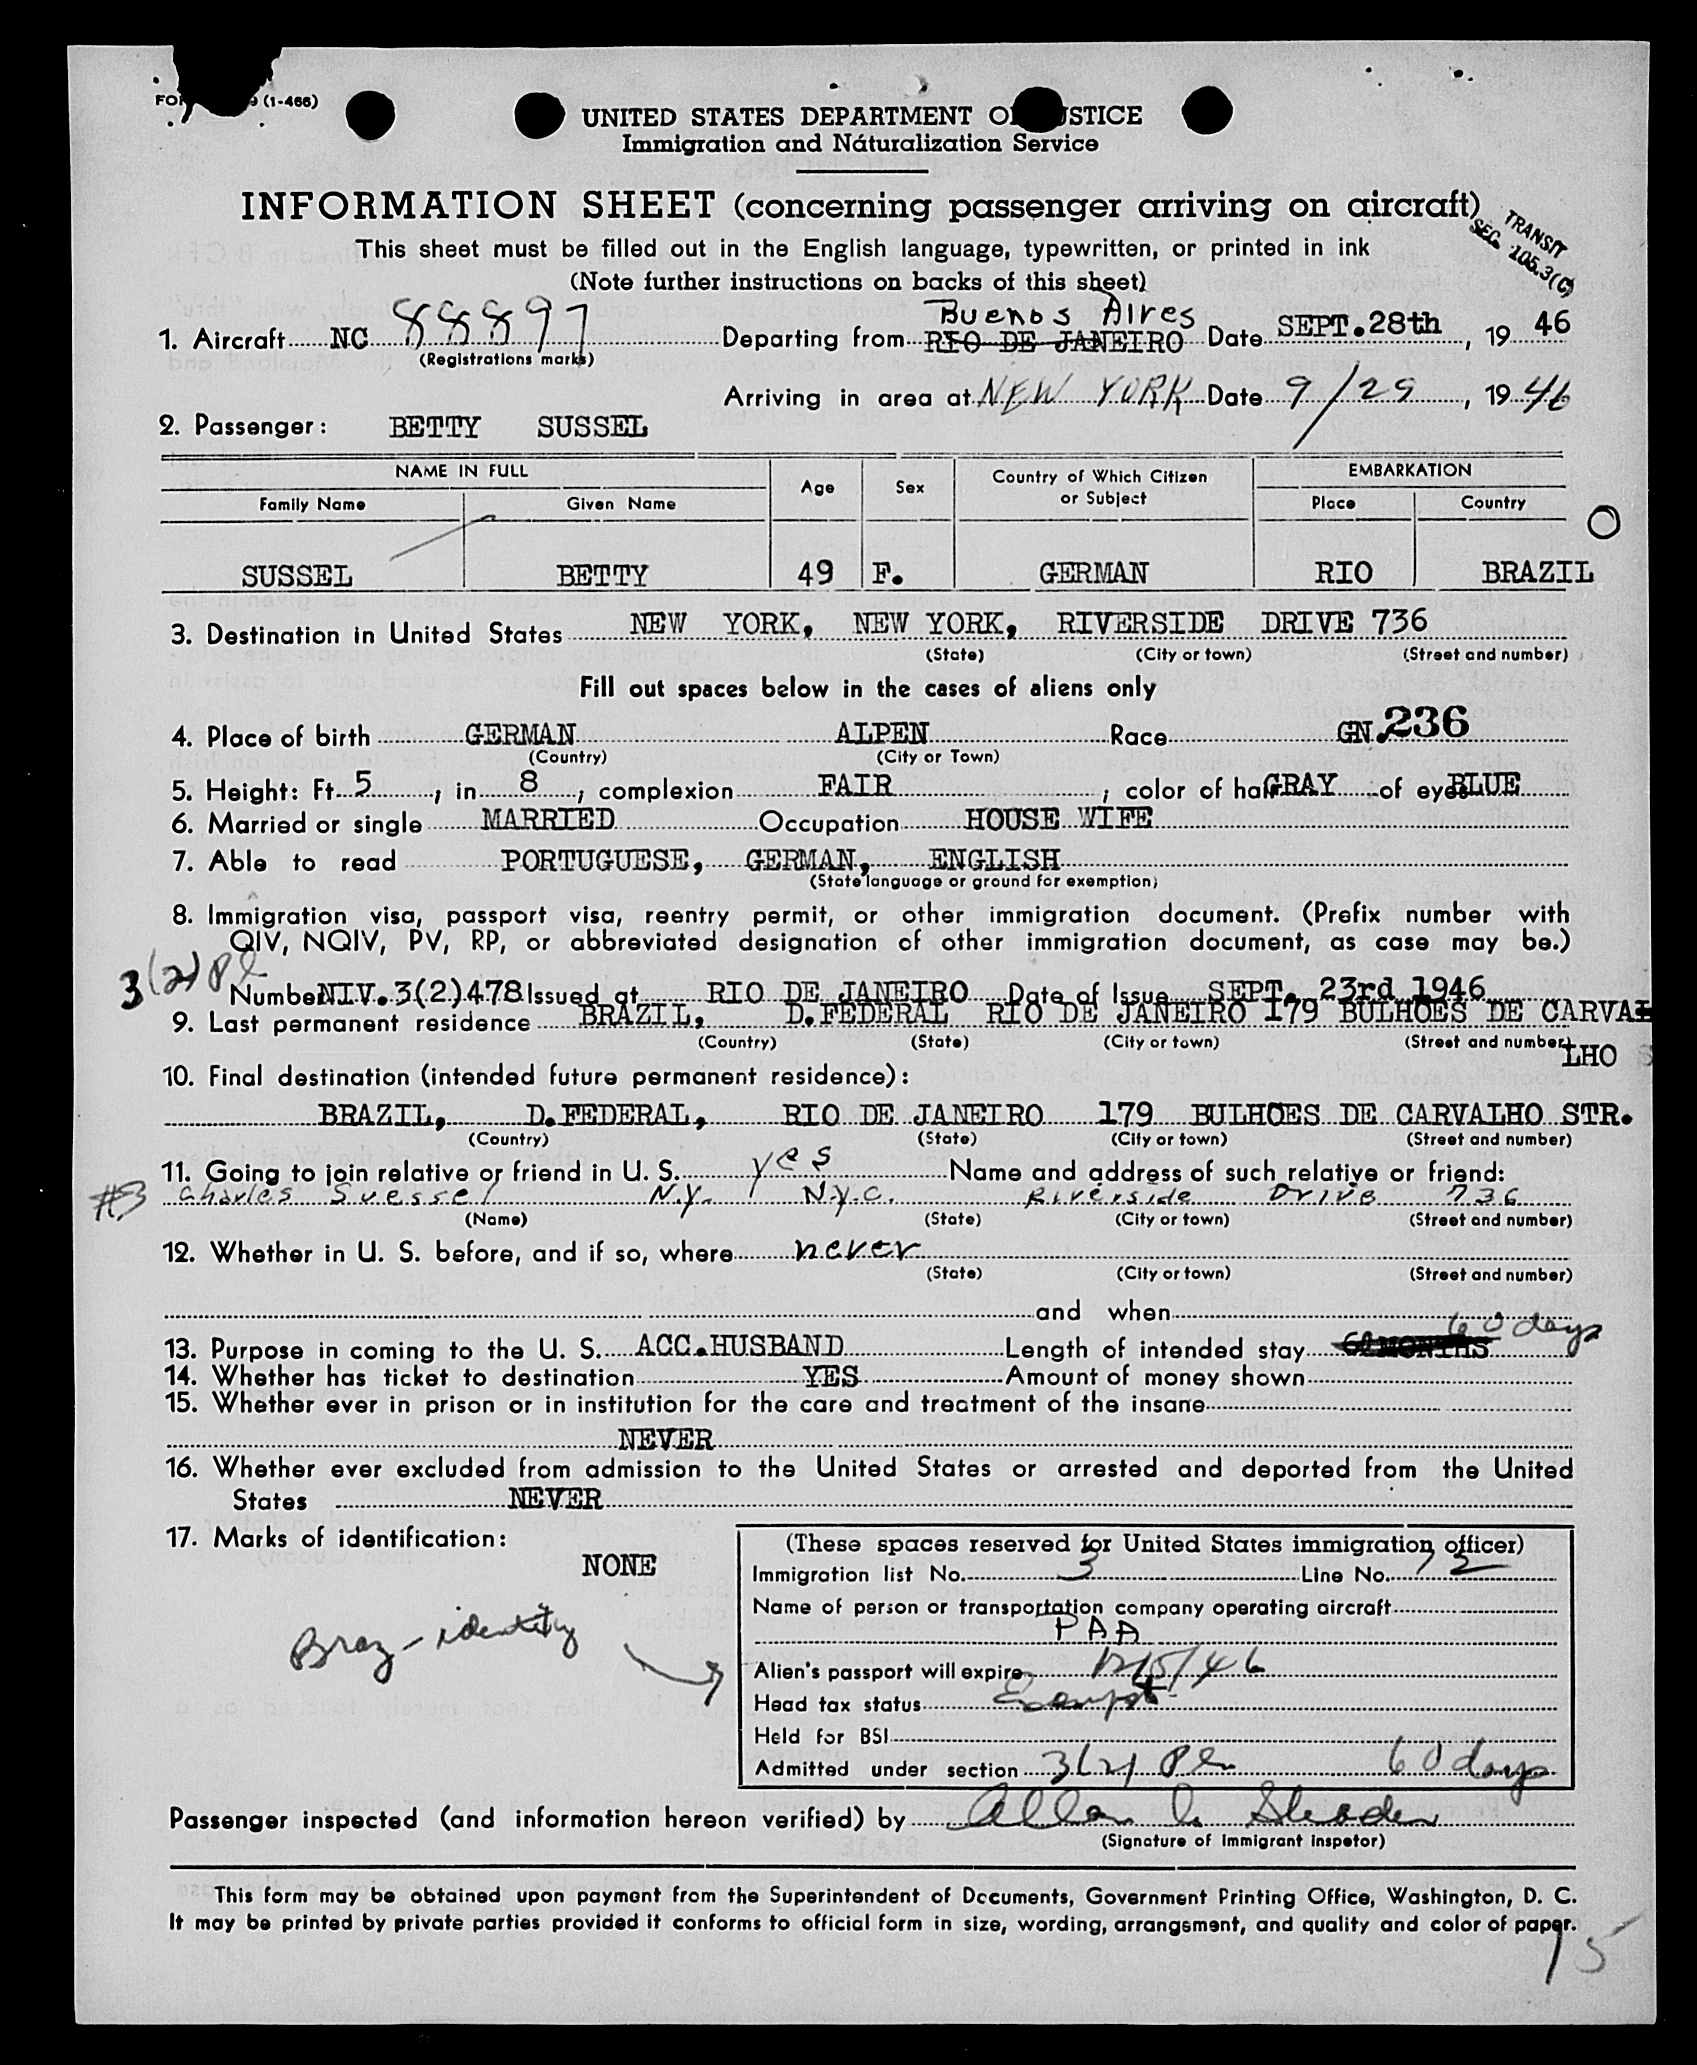 (1-466)
UNITED STATES DEPARTMENT OF JUSTICE
Immigration and Naturalization Service
INFORMATION SHEET (concerning passenger arriving on aircraft)
TRANSIT
SEC. 105.3(C)
This sheet must be filled out in the English language, typewritten, or printed in ink
(Note further instructions on backs of this sheet)
Buenos Aires
1. Aircraft NC 88897 Departing from RIO DE JANEIRO Date SEPT.28th, 19 46
(Registrations marks)
Arriving in area at NEW YORK Date 9/29, 19 46
2. Passenger: BETTY SUSSEL
NAME IN FULL Age Sex Country of Which Citizen or Subject EMBARKATION
Family Name Given Name Place Country
SUSSEL BETTY 49 F. GERMAN RIO BRAZIL
3. Destination in United States NEW YORK, NEW YORK, RIVERSIDE DRIVE 736
(State) (City or town) (Street and number)
Fill out spaces below in the cases of aliens only
4. Place of birth GERMAN ALPEN Race GN. 236
(Country) (City or Town)
5. Height: Ft. 5, in. 8; complexion FAIR; color of hair GRAY of eyes BLUE
6. Married or single MARRIED Occupation HOUSE WIFE
7. Able to read PORTUGUESE, GERMAN, ENGLISH
(State language or ground for exemption)
8. Immigration visa, passport visa, reentry permit, or other immigration document. (Prefix number with
QIV, NQIV, PV, RP, or abbreviated designation of other immigration document, as case may be.)
3(2) Pl
Number NIV.3(2)478 Issued at RIO DE JANEIRO Date of Issue SEPT. 23rd 1946
9. Last permanent residence BRAZIL, D.FEDERAL RIO DE JANEIRO 179 BULHOES DE CARVA
(Country) (State) (City or town) (Street and number) LHO
10. Final destination (intended future permanent residence):
BRAZIL, D.FEDERAL, RIO DE JANEIRO 179 BULHOES DE CARVALHO STR.
(Country) (State) (City or town) (Street and number)
11. Going to join relative or friend in U. S. yes Name and address of such relative or friend:
#3 Charles Suessel N.Y. N.Y.C. Riverside Drive 736
(Name) (State) (City or town) (Street and number)
12. Whether in U. S. before, and if so, where never
(State) (City or town) (Street and number)
and when
60 days
13. Purpose in coming to the U. S. ACC.HUSBAND Length of intended stay MONTHS
14. Whether has ticket to destination YES Amount of money shown
15. Whether ever in prison or in institution for the care and treatment of the insane
NEVER
16. Whether ever excluded from admission to the United States or arrested and deported from the United
States NEVER
17. Marks of identification:
NONE
Braz - identity
(These spaces reserved for United States immigration officer)
Immigration list No. 3 Line No. 12
Name of person or transportation company operating aircraft
PAA
Alien's passport will expire 12/5/46
Head tax status Exempt
Held for BSI
Admitted under section 3(2) Pl 60 days
Passenger inspected (and information hereon verified) by Allen
(Signature of Immigrant Inspetor)
This form may be obtained upon payment from the Superintendent of Documents, Government Printing Office, Washington, D. C.
It may be printed by private parties provided it conforms to official form in size, wording, arrangement, and quality and color of paper.
15